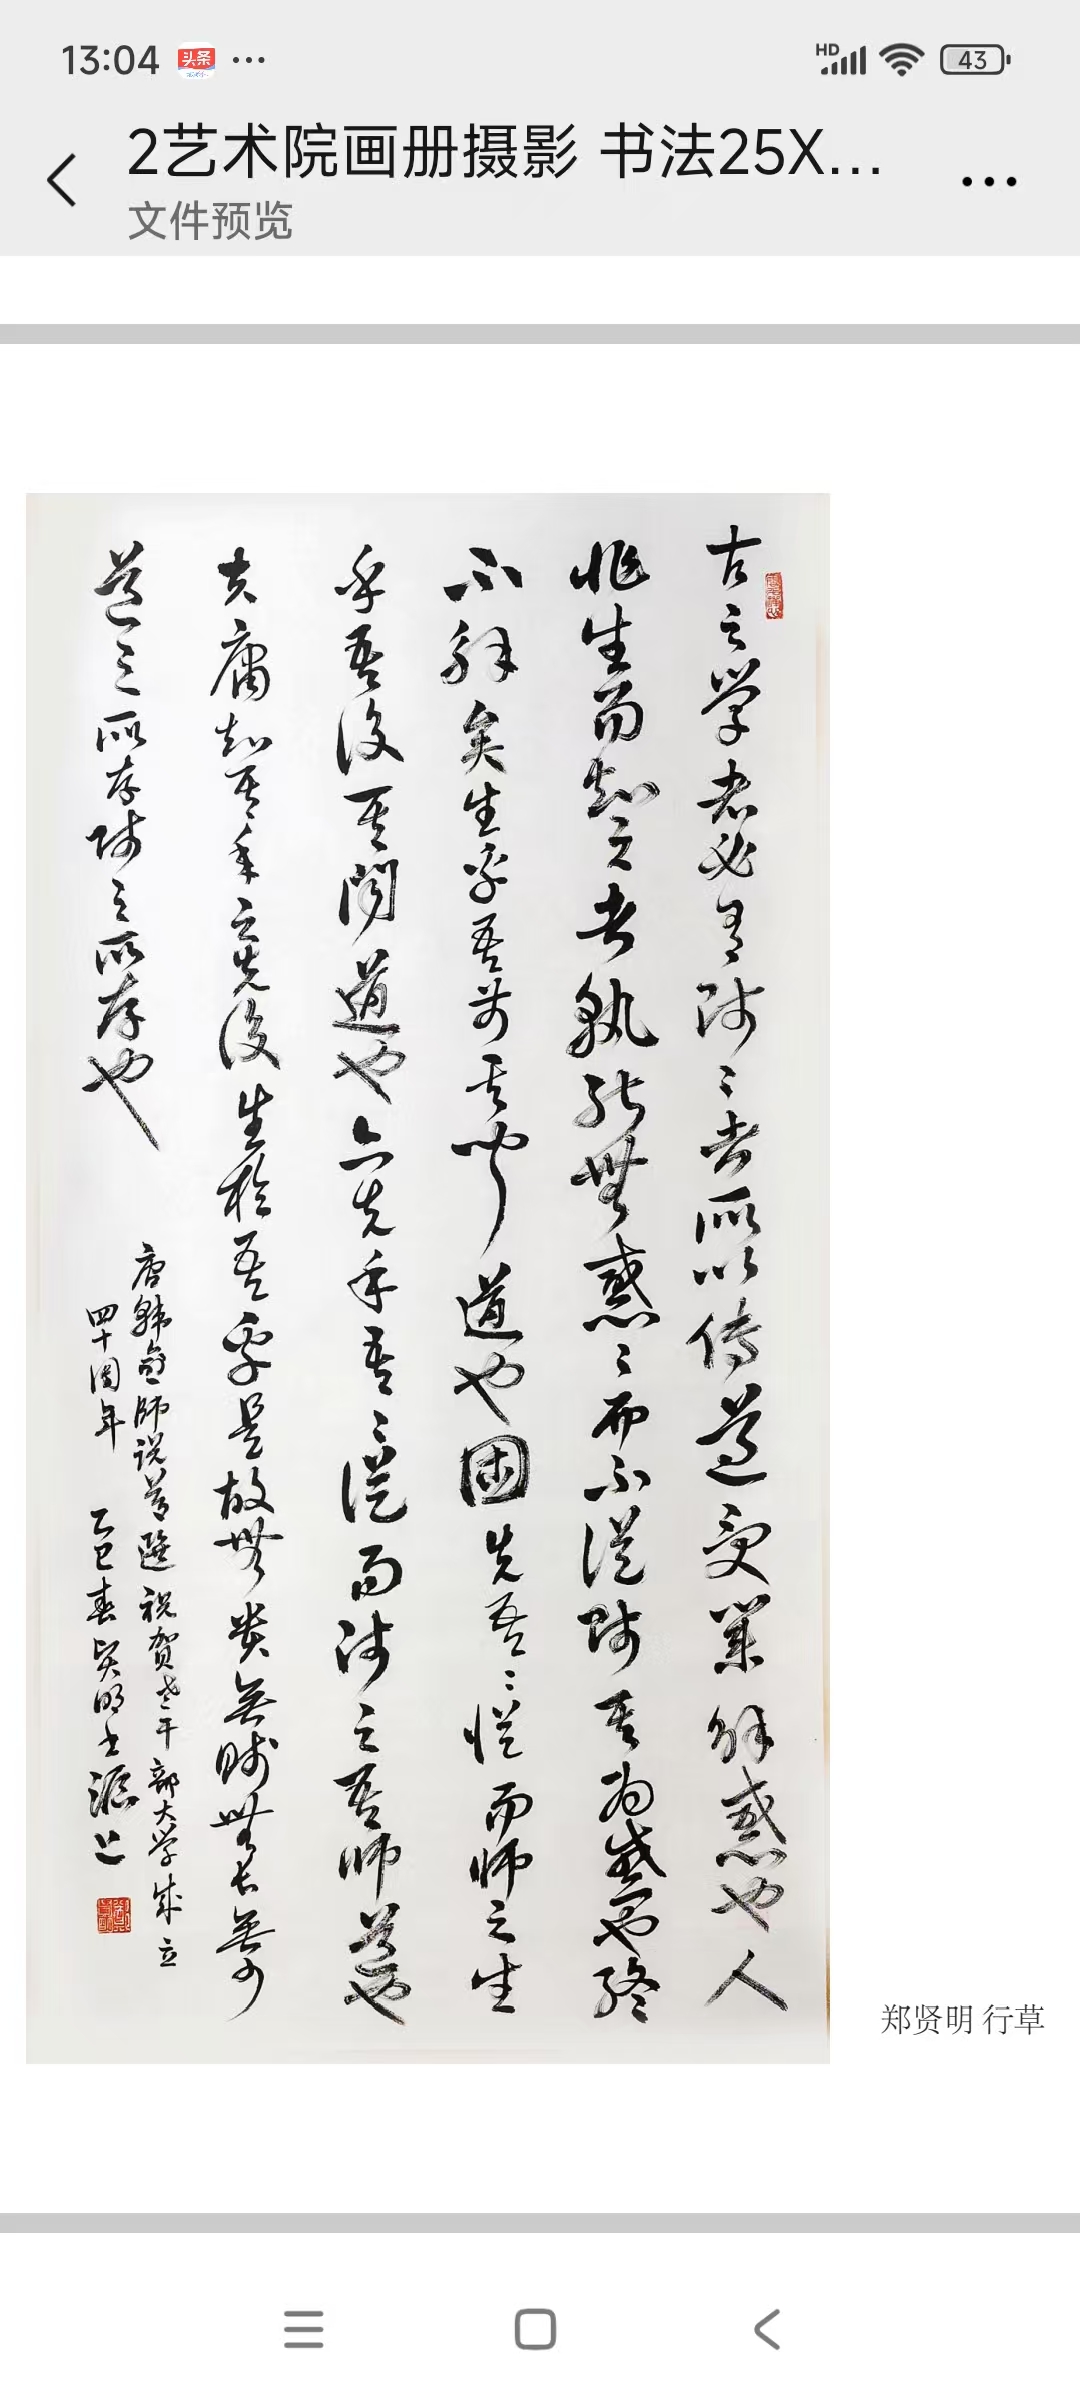 13:04 头条 ...
HD 43
2艺术院画册摄影 书法25X...
文件预览
古之学者必有师〻者所以传道受业解惑也人
非生而知之者孰能無惑〻而不從师其为惑也終
不解矣生乎吾前其闻道也固先吾〻從而師之生
乎吾後其闻道也亦先乎吾〻從而师之吾師道也
夫庸知其年之先後生於吾乎是故無贵無贱無长無少
道之所存师之所存也
唐韩愈師说节選 祝贺老干部大学成立
四十周年 乙巳春 贤明书 上
郑贤明 行草